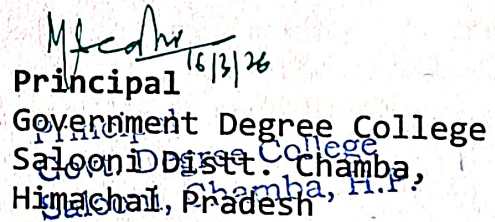 16/3/26
Principal
Government Degree College
Salooni Distt. Chamba,
Himachal Pradesh
Principal
Govt. Degree College
Salooni, Chamba, H.P.